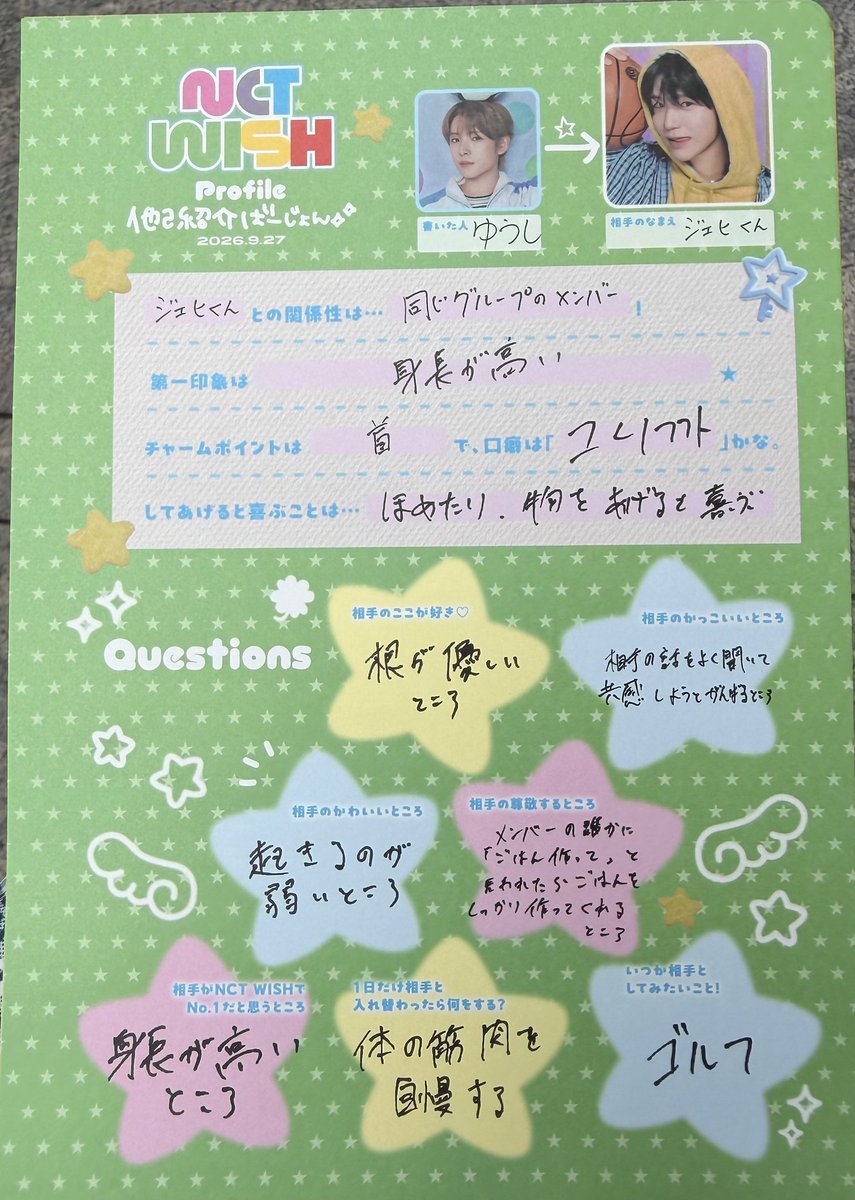 NCT
WISH
Profile
他己紹介ばーじょん
2026.9.27
書いた人 ゆうし
相手のなまえ ジェヒくん
ジェヒくん との関係性は… 同じグループのメンバー !
第一印象は 身長が高い
チャームポイントは 首 で、口癖は「 」かな。
してあげると喜ぶことは… ほめたり、物をあげると喜ぶ
Questions
相手のここが好き♡
根が優しい
ところ
相手のかっこいいところ
相手の話をよく聞いて
共感しようとがんばるところ
相手のかわいいところ
起きるのが
弱いところ
相手の尊敬するところ
メンバーの誰かに
「ごはん作って」と
言われたらごはんを
しっかり作ってくれる
ところ
相手がNCT WISHで
No.1だと思うところ
身長が高い
ところ
1日だけ相手と
入れ替わったら何をする?
体の筋肉を
自慢する
いつか相手と
してみたいこと!
ゴルフ